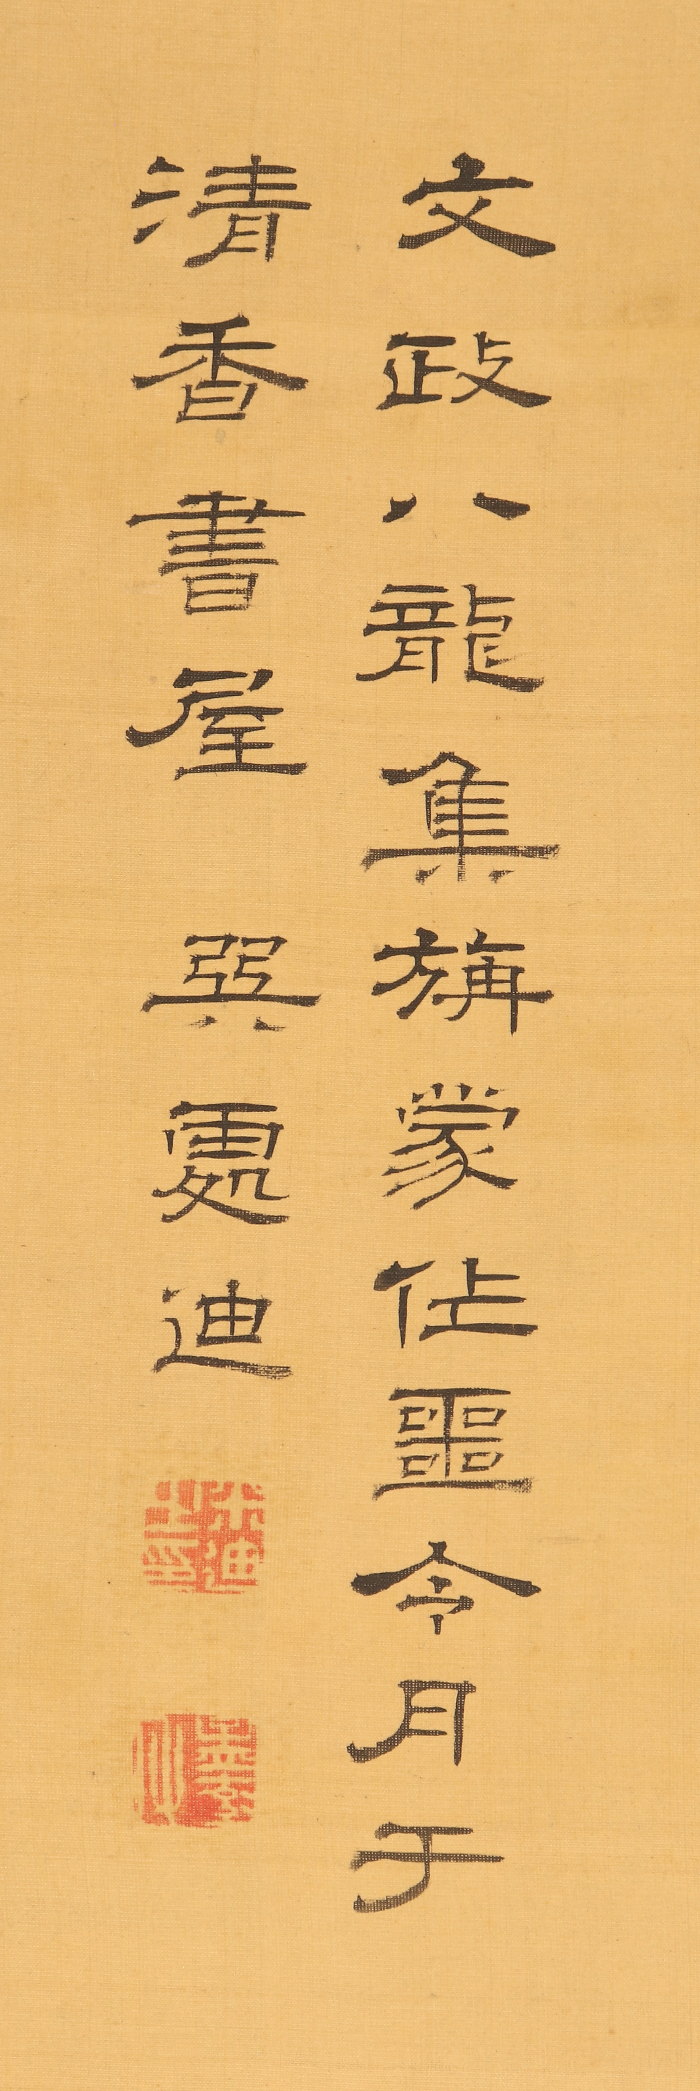 文政八龍集旃蒙作噩令月于
清香書屋 巽處迪